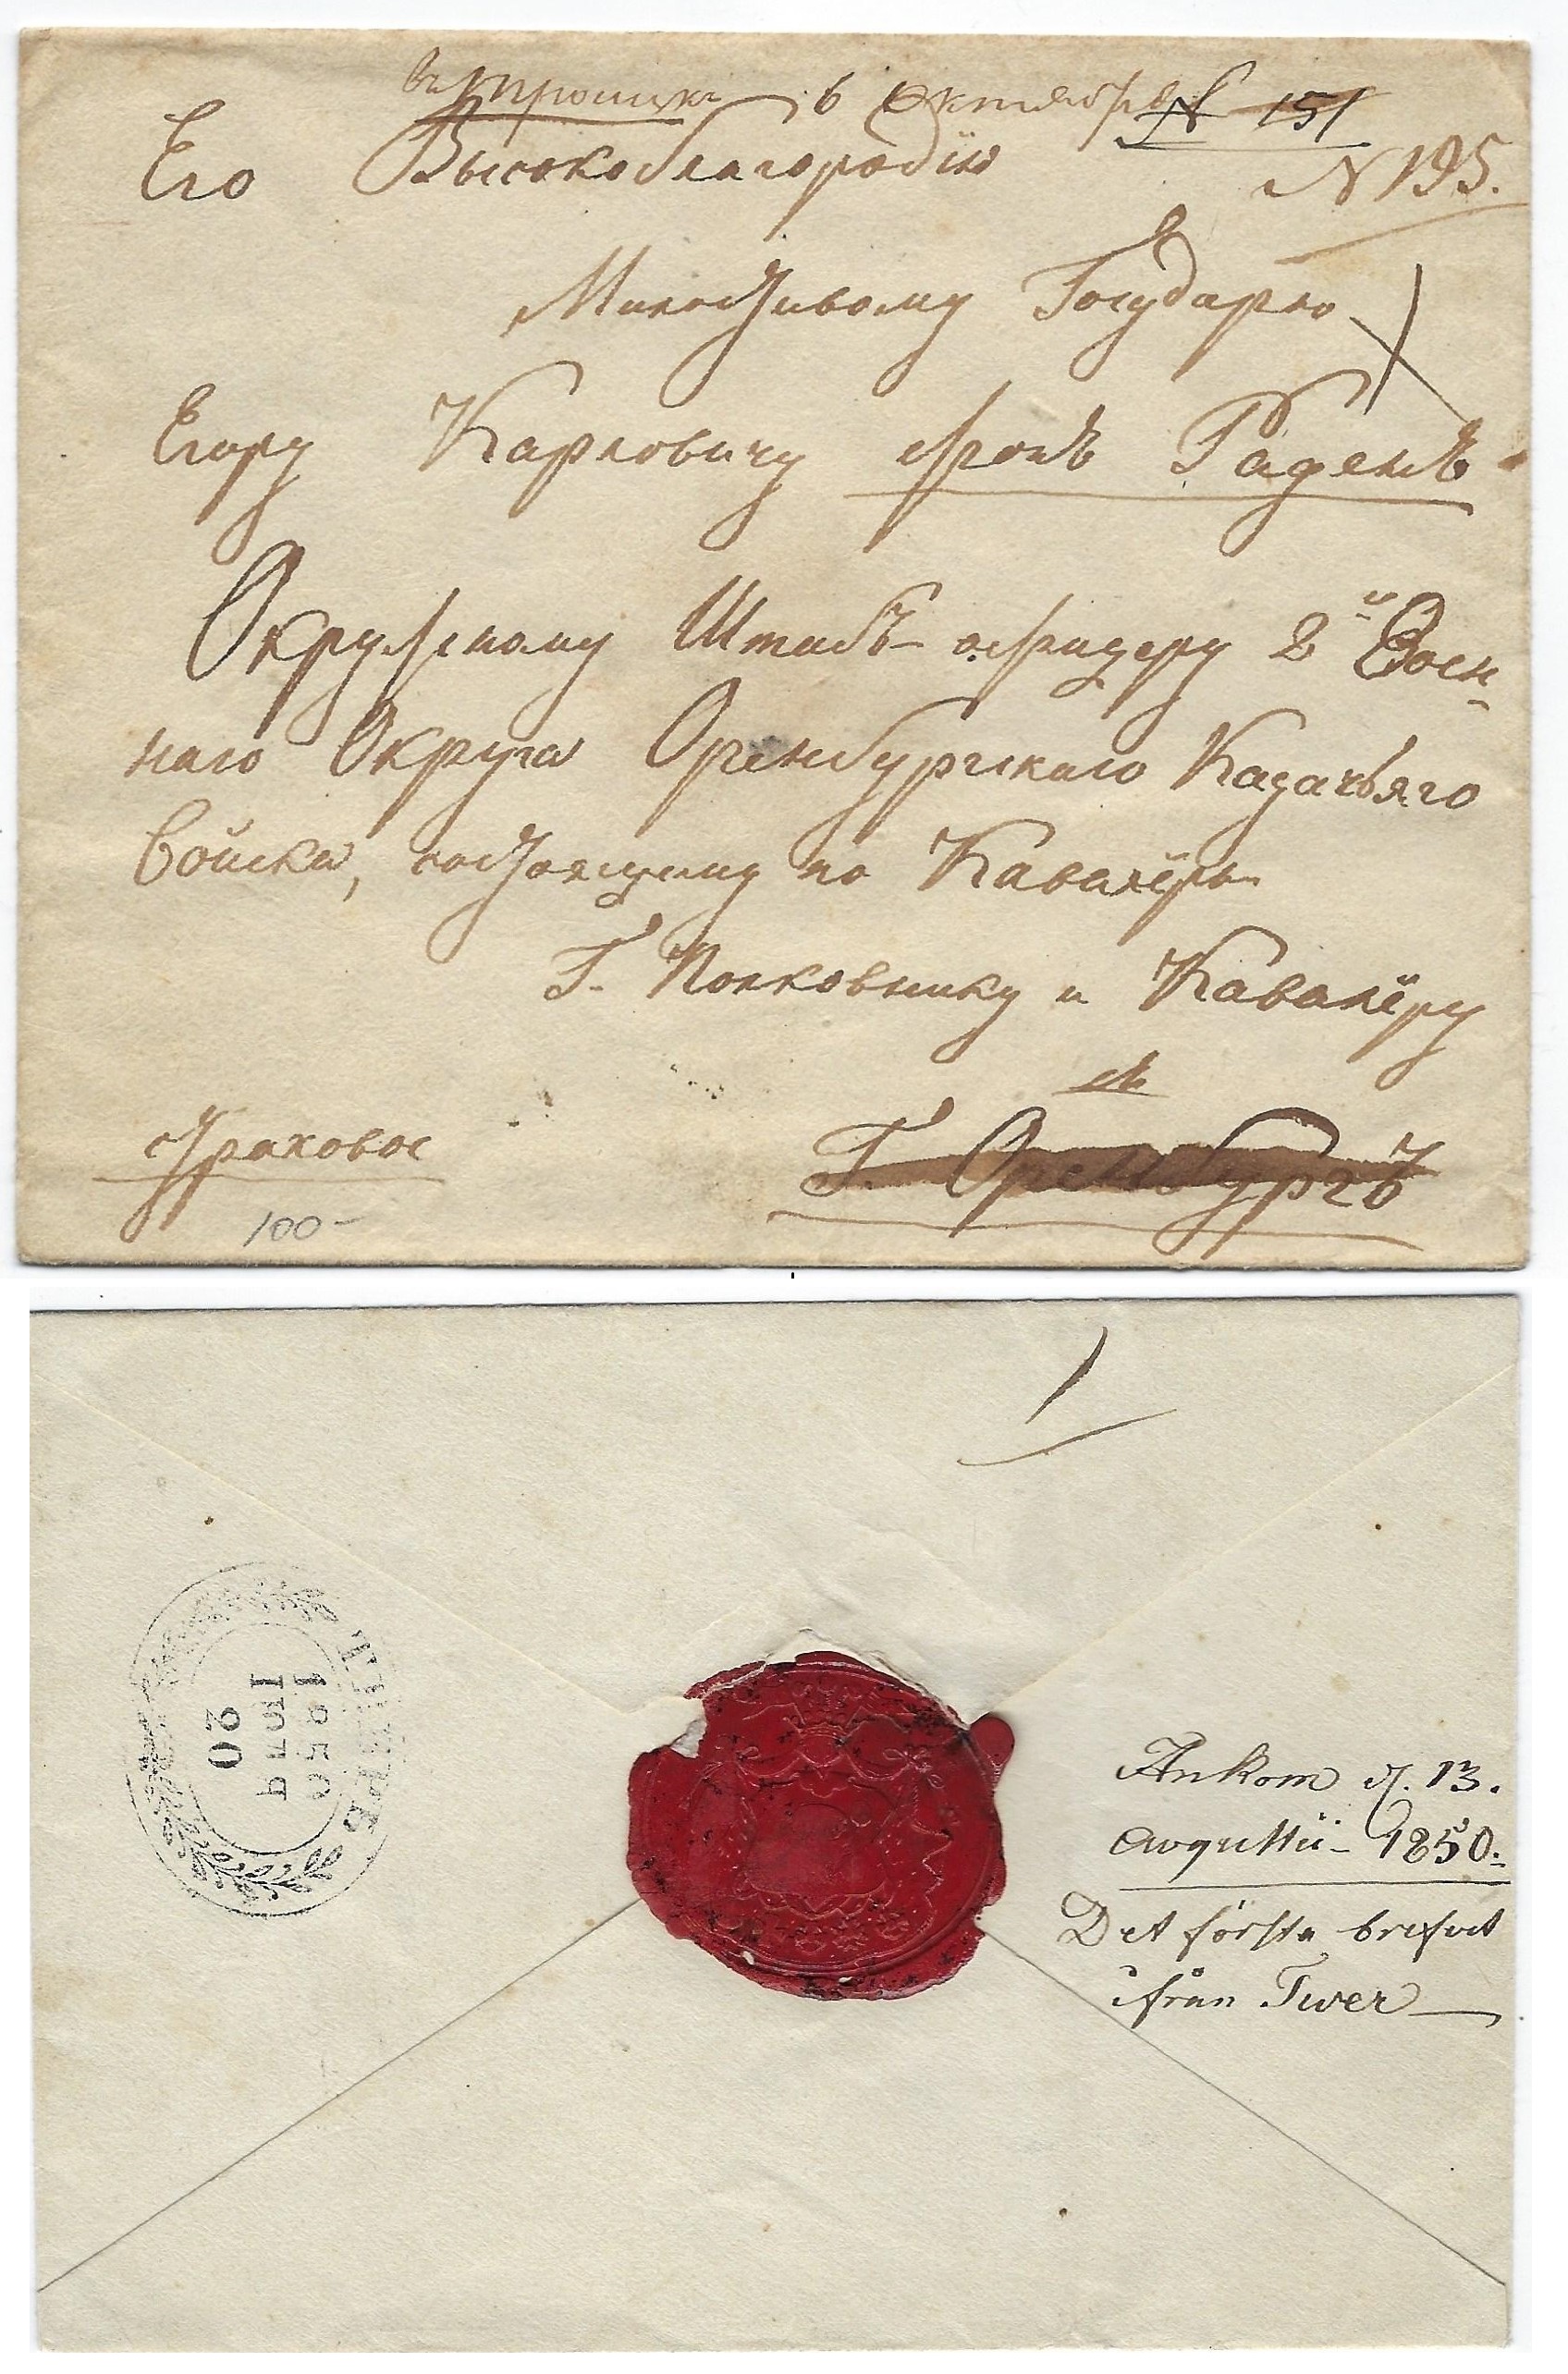 въ Троицкъ 6 Октября № 151
Его Высокоблагородію № 195.
Милостивому Государю
Егору Карловичу фонъ Раденъ
Окружному Штабъ-офицеру 2й Воен-
наго Округа Оренбургскаго Казачьяго
Войска, состоящему по Кавалёріи
Г. Полковнику и Кавалёру
въ
Г. Оренбургъ
страховое
100-
ТВЕРЬ
1850
Іюль
20
Ankom d. 13.
Avgustii - 1850.
Det första brefvet
ifrån Twer